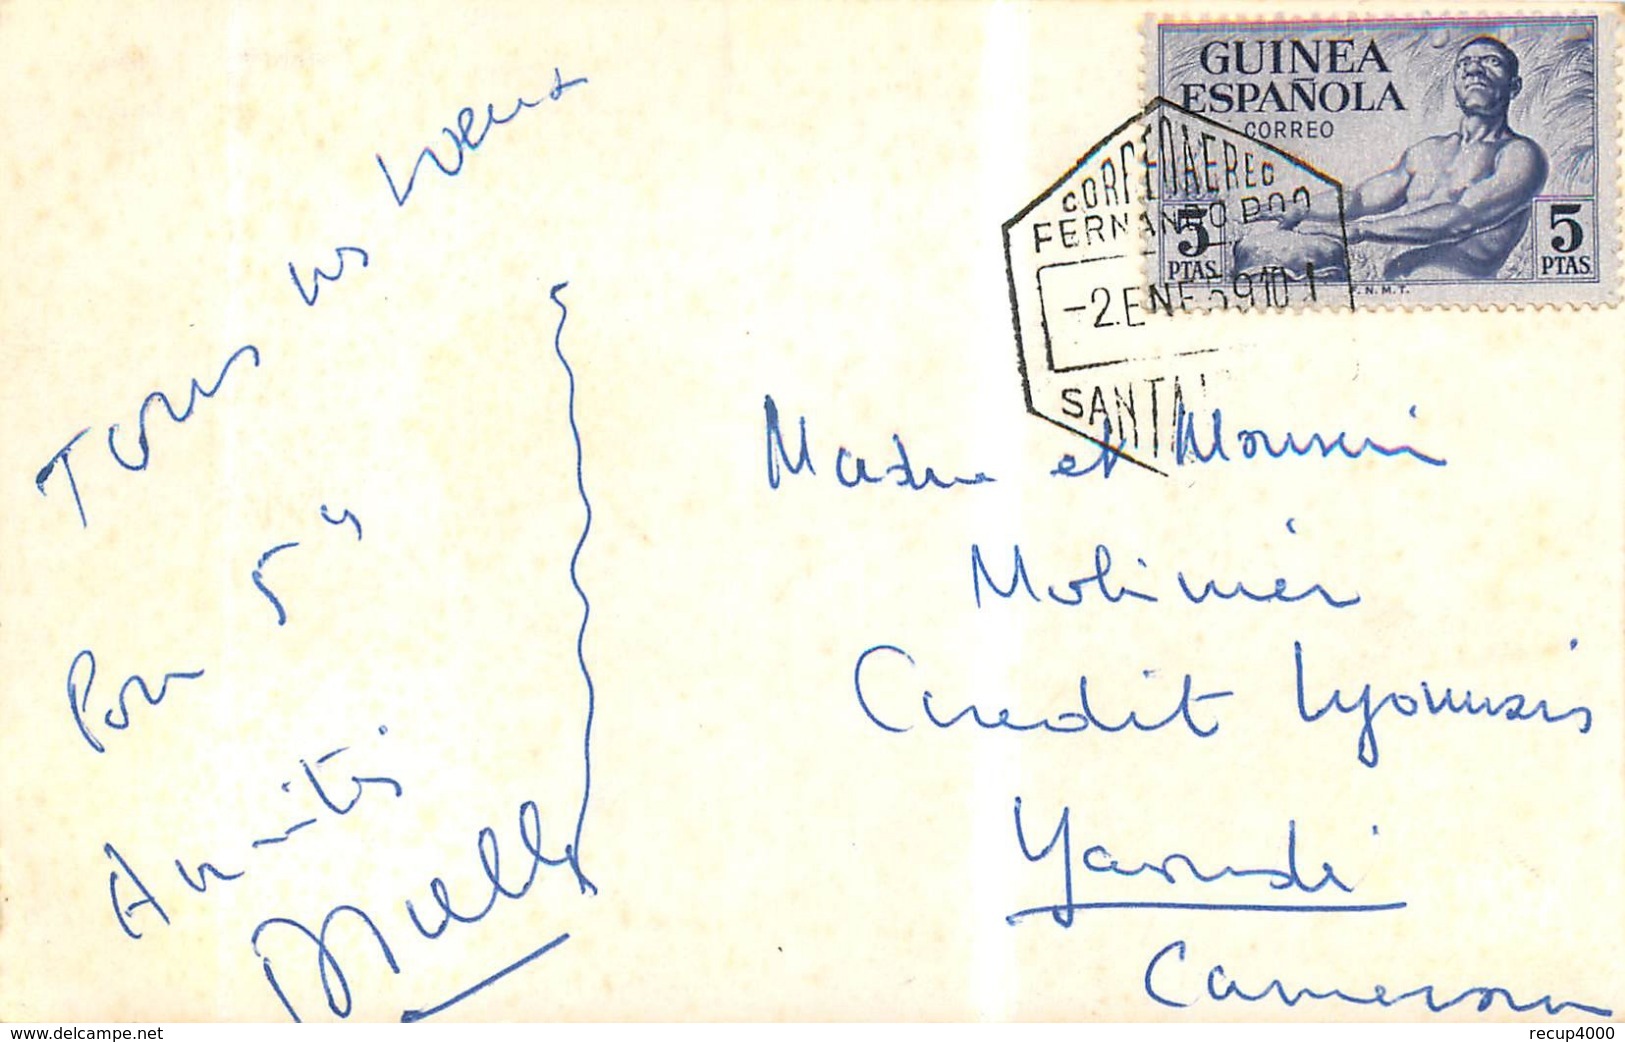 GUINEA
ESPAÑOLA
CORREO
5
PTAS
5
PTAS
F.N.M.T.
CORREO AEREO
FERNANDO POO
-2.ENE 59 10
SANTA
Tous nos voeux
Pour 59
Amitiés
Madame et Monsieur
Molinier
Credit Lyonnais
Yaoundé
Cameroun
www.delcampe.net
recup4000